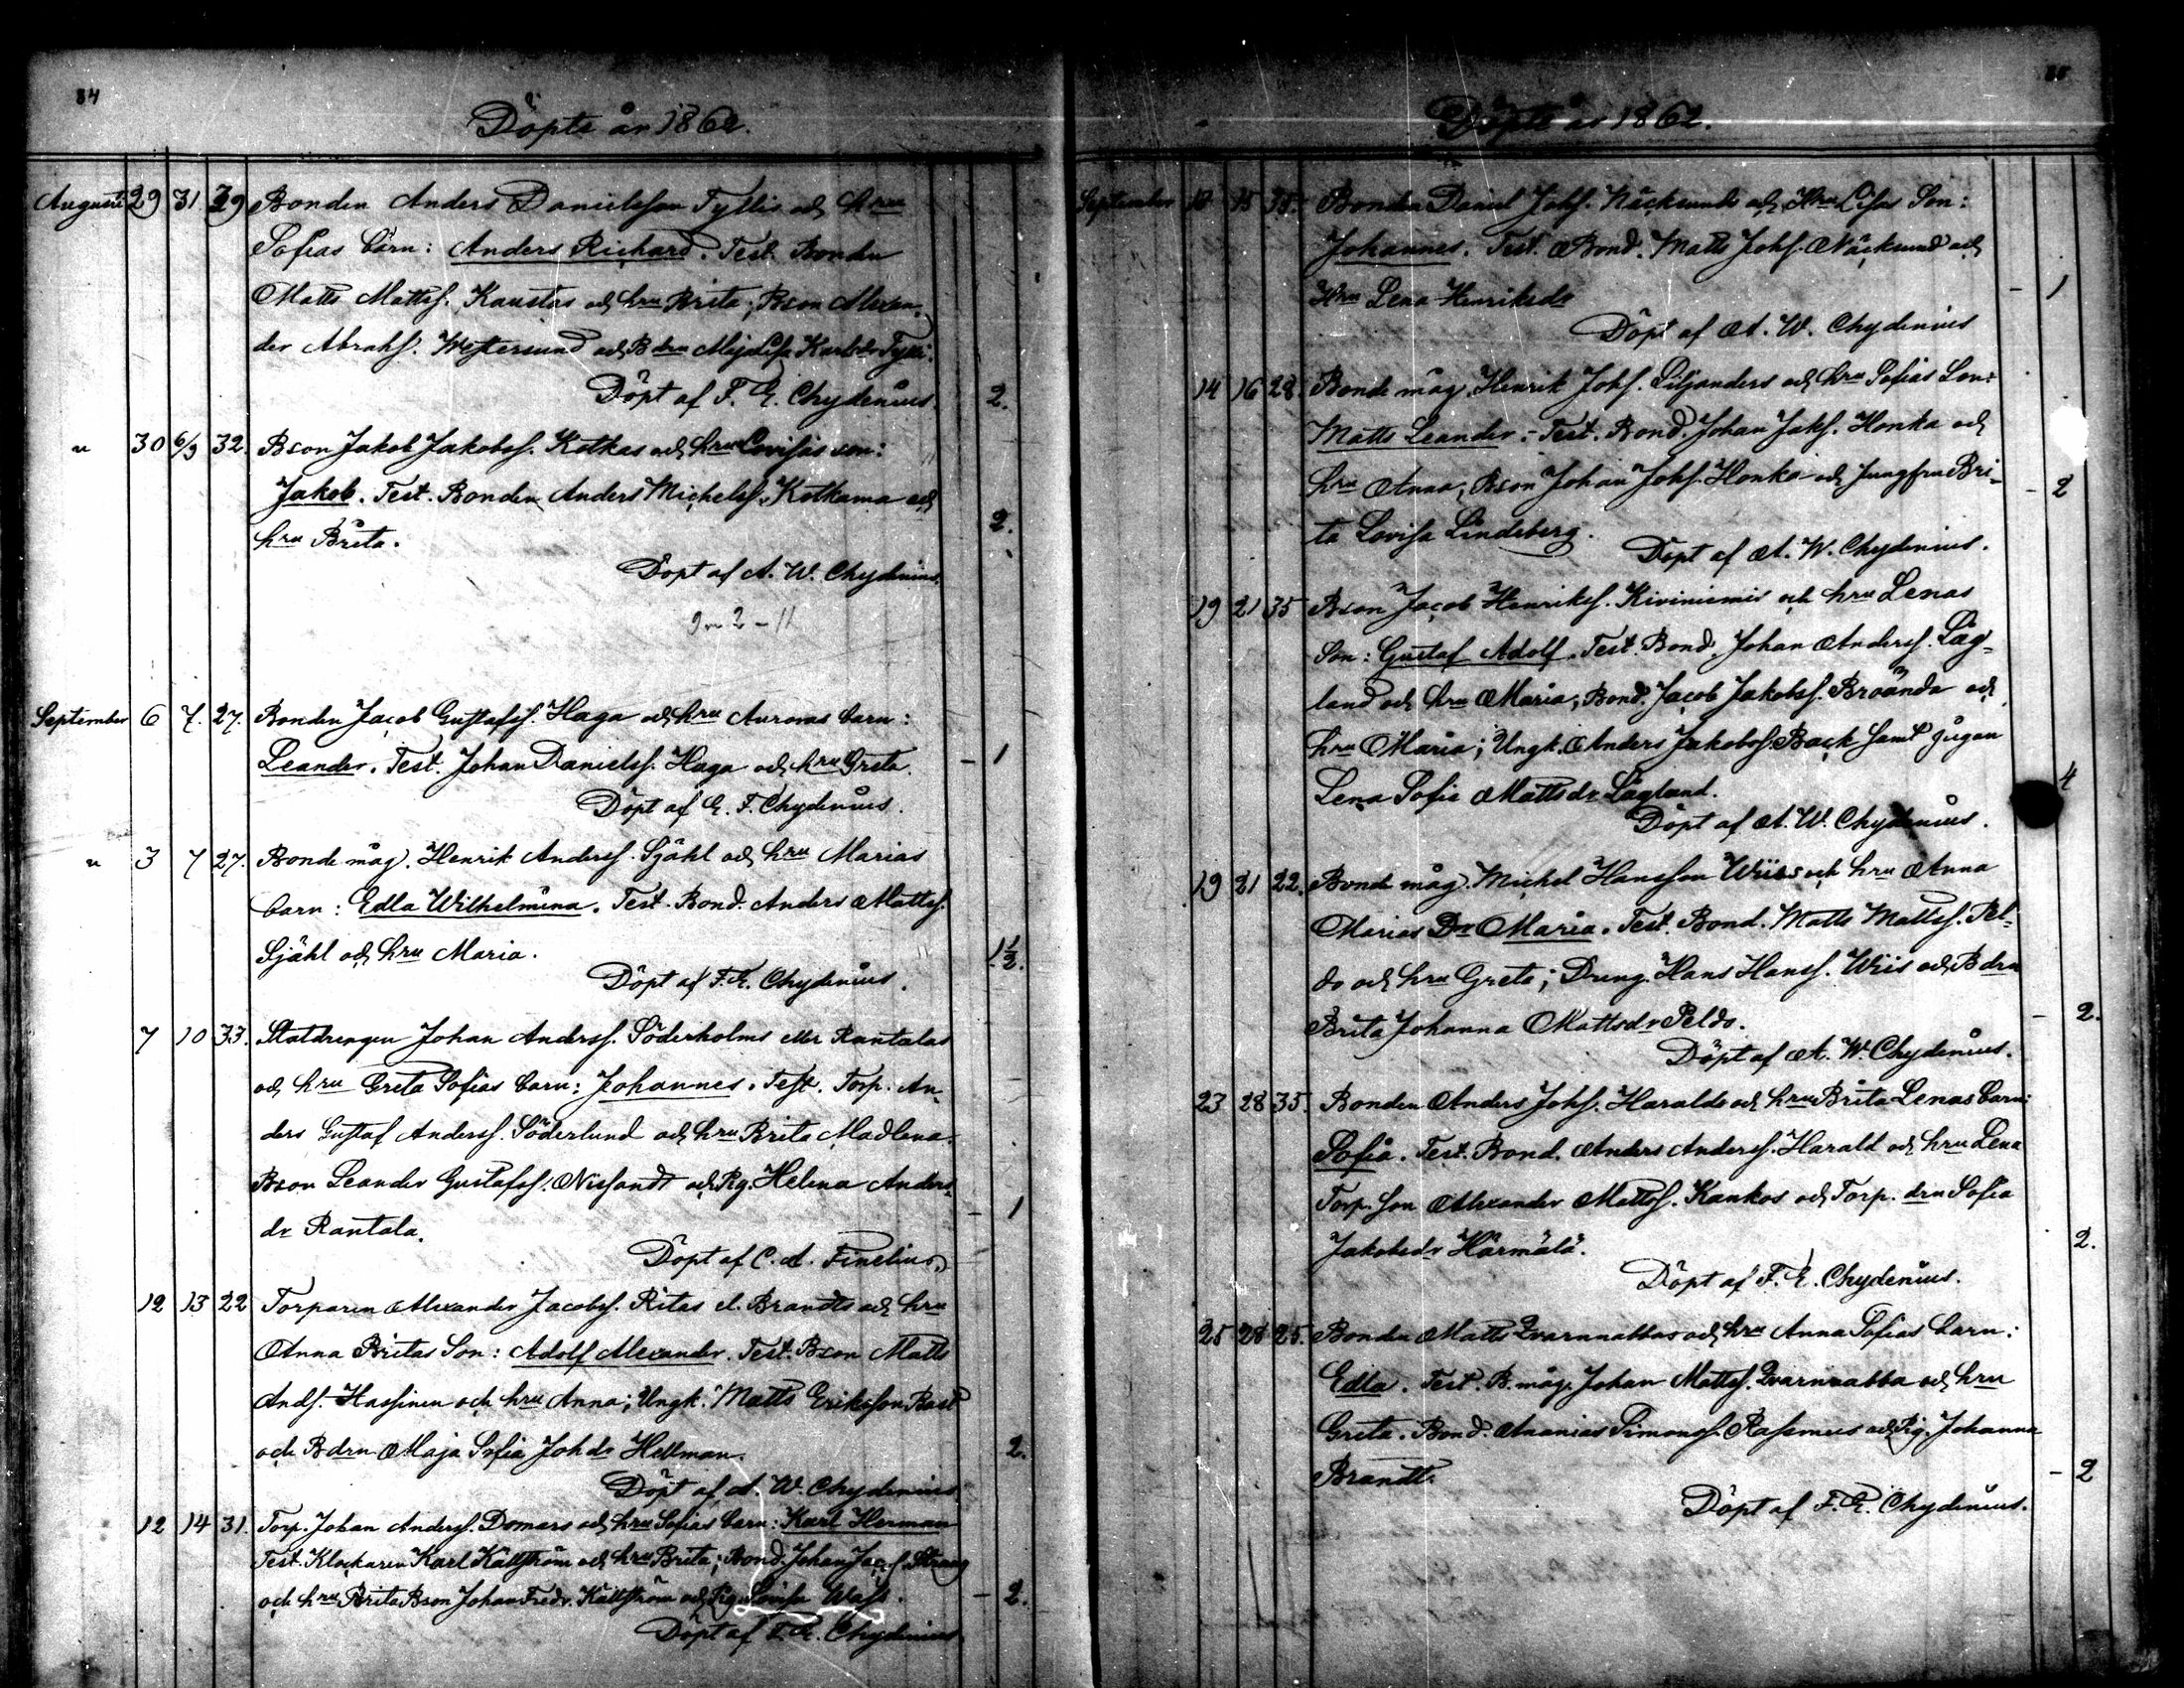 84
Döpte år 1862.
Augusti 29 31 39 Bonden Anders Danielsson Tyllis och hru
Sofias barn: Anders Richard. Test. Bonden
Matts Mattss. Kaustas och hru Brita; Bson Alexan-
der Abrahs. Westersund och Bdrn Maja Lisa Karlsdr Tylli.
Döpt af F. E. Chydenius. 2.
" 30 6/9 32. Bson Jakob Jakobss. Kotkas och hru Lovisas son:
Jakob. Test. Bonden Anders Michelss. Kotkama och
hru Brita. 2.
Döpt af A. W. Chydenius.
September 6 7. 27. Bonden Jacob Gustafss. Haga och hru Auroras barn:
Leander. Test. Johan Danielss. Haga och hru Greta. - 1
Döpt af E. F. Chydenius.
" 3 7 27. Bonde måg. Henrik Anderss. Sjöhl och hru Marias
barn: Edla Wilhelmina. Test. Bond. Anders Mattss.
Sjöhl och hru Maria. 1 1/2.
Döpt af F. E. Chydenius.
7 10 33. Statdrengen Johan Anderss. Söderholms eller Rantalas
och hru Greta Sofias barn: Johannes. Test. Torp. An-
ders Gustaf Anderss. Söderlund och hru Brita Madlena.
Bson Leander Gustafss. Nissandt och Pig. Helena Anders-
dr Rantala. - 1
Döpt af C. A. Finelius.
12 13 22 Torparen Alexander Jacobss. Ritas el. Brandts och hru
Anna Britas Son: Adolf Alexander. Test. Bson Matts
Ands. Hassinen och hru Anna; Ungk. Matts Eriksson Bast
och Bdrn Maja Sofia Johdr Hellman. 2.
Döpt af A. W. Chydenius
12 14 31. Torp. Johan Anderss. Domars och hru Sofias barn: Karl Herman
Test. Klockaren Karl Källström och hru Brita; Bond. Johan Jac.s. Strang
och hru Brita Bson Johan Fredr. Källström och Pig. Lovisa Wass. - 2.
Döpt af F. E. Chydenius
Döpte år 1862.
September 35. Bonden Daniel Johs. Näcksunds och Hru Lisas Son:
Johannes. Test. Bond. Matts Johs. Näcksund och
Hru Lena Henriksdr - 1
Döpt af A. W. Chydenius
14 16 28. Bonde måg. Henrik Johs. Liljanders och hru Sofias Son:
Matts Leander. - Test. Bond. Johan Jaks. Honka och
hru Anna, Bson Johan Johs. Honka och Jungfru Bri- - 2
ta Lovisa Lindeberg.
Döpt af A. W. Chydenius.
19 21 35 Bson Jacob Henrikss. Kiviniemis och hru Lenas
Son: Gustaf Adolf. Test. Bond. Johan Anderss. Läg-
land och hru Maria; Bond. Jacob Jakobss. Broända och
hru Maria; Ungk. Anders Jakobss. Back samt pigan
Lena Sofia Mattsdr Lägland. 4
Döpt af A. W. Chydenius.
19 21 22. Bonde måg. Michel Hansson Wiiss och hru Anna
Marias Dr Maria. Test. Bond. Matts Mattss. Pel-
do och hru Greta; Dreng. Hans Hanss. Wiis och Bdrn
Brita Johanna Mattsdr Peldo. - 2.
Döpt af A. W. Chydenius.
23 28 35. Bonden Anders Johs. Haralds och hru Brita Lenas barn:
Sofia. Test. Bond. Anders Anderss. Harald och hru Lena
Torp. son Alexander Mattss. Kankos och Torp. drn Sofia
Jakobsdr Härmälä. 2.
Döpt af F. E. Chydenius.
25 28 25. Bonden Matts Qvarnnabbas och hru Anna Sofias barn:
Edla. Test. B. måg. Johan Mattss. Qvarnnabba och hru
Greta. Bond. Ananias Simonss. Rasmus och Pig. Johanna
Brandt. - 2
Döpt af F. E. Chydenius.